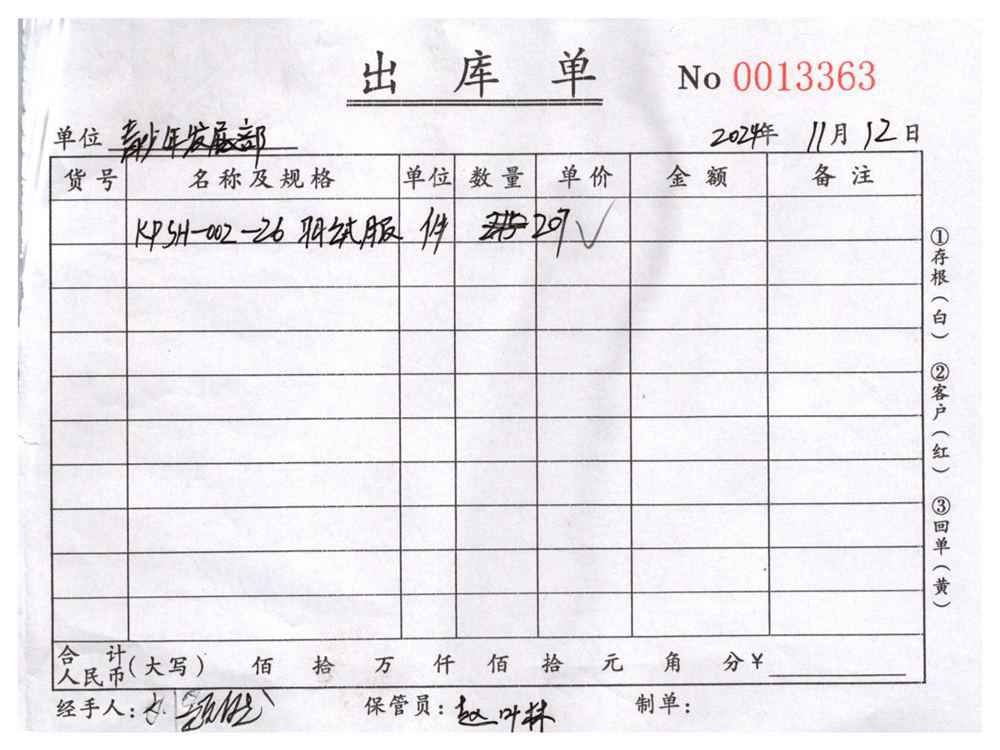 出库单 No 0013363
单位 青少年发展部 2024年 11月 12日
货号 名称及规格 单位 数量 单价 金额 备注
KPSH-002-26 羽绒服 件 207 ✓
合计人民币(大写) 佰 拾 万 仟 佰 拾 元 角 分 ¥
经手人: 保管员:赵叶林 制单:
①存根(白) ②客户(红) ③回单(黄)